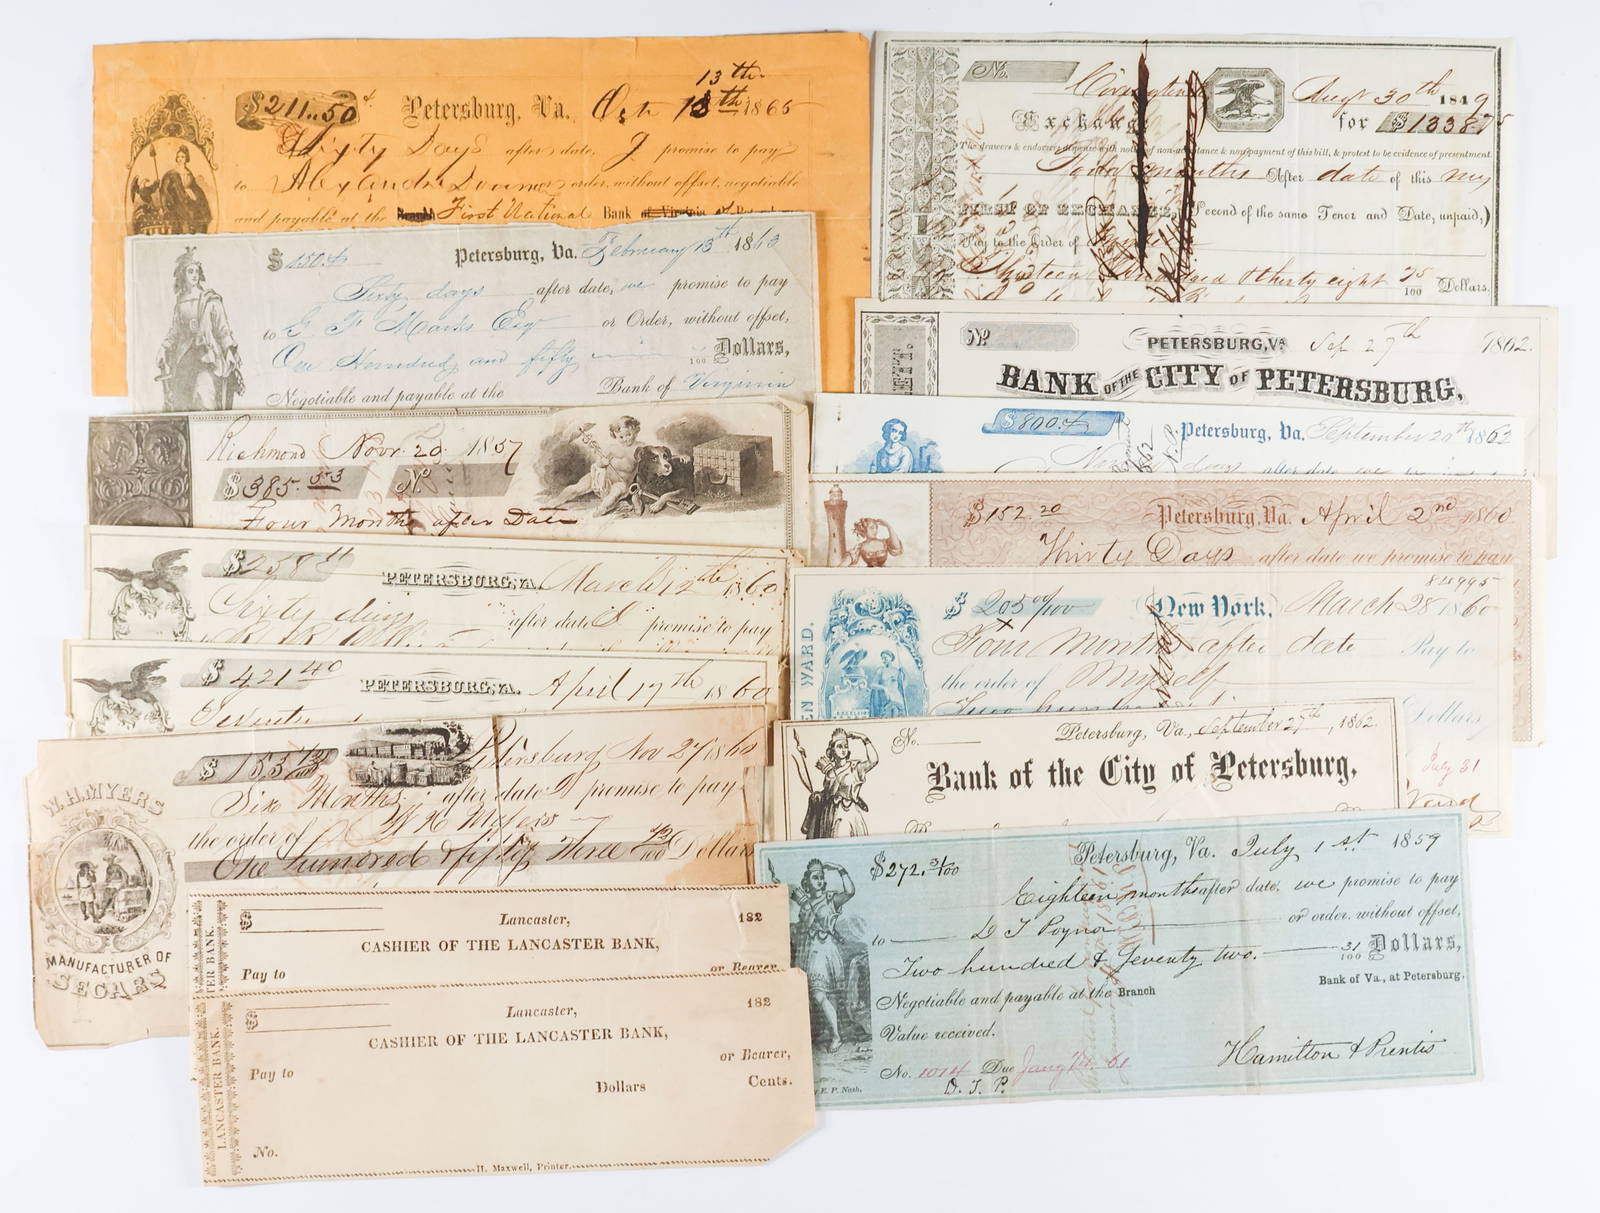 $211.50
Petersburg, Va. Oct 13th 1865
13th
Sixty Days after date, I promise to pay
to Alexander Donnan or order, without offset, negotiable
and payable at the Branch First National Bank of Virginia at
$150.
Petersburg, Va. February 13th 1863
Sixty days after date, we promise to pay
to E F Marks Esq or Order, without offset,
One Hundred and fifty 100 Dollars,
Negotiable and payable at the Bank of Virginia
Richmond Novr. 20. 1857
$385.53 No
Four Months after Date
$258
PETERSBURG, VA. March 12th 1860
Sixty days after date I promise to pay
$421 40
PETERSBURG, VA. April 17th 1860
Seventy
$153 13/100
Petersburg Nov 27 1860
Six Months after date I promise to pay
the order of W H Myers
One hundred & fifty Three 13/100 Dollars
W.H. MYERS
MANUFACTURER OF
SEGARS
LANCASTER BANK.
$
Lancaster, 182
CASHIER OF THE LANCASTER BANK,
Pay to or Bearer,
LANCASTER BANK.
$
Lancaster, 182
CASHIER OF THE LANCASTER BANK,
or Bearer,
Pay to
Dollars Cents.
No.
H. Maxwell, Printer.
No.
Covington Augt 30th 1849
Exchange for $1338 75
The drawers & endorsers dispense with notice of non-acceptance & non-payment of this bill, & protest to be evidence of presentment.
months After date of this my
FIRST OF EXCHANGE, (Second of the same Tenor and Date, unpaid,)
Pay to the Order of
Thirteen hundred & thirty eight 75/100 Dollars.
No
PETERSBURG, VA. Sep 27th 1862.
BANK OF THE CITY OF PETERSBURG,
$800.
Petersburg, Va. September 20th 1862
days after date we
$152.20
Petersburg, Va. April 2nd 1860
Thirty Days after date we promise to pay
84995
$205 00/100
New York, March 28 1860
Four Months after date Pay to
the order of Myself
Two hundred
Dollars
WARD.
July 31
No.
Petersburg, Va., September 27th, 1862
Bank of the City of Petersburg,
$272.31/100
Petersburg, Va. July 1st 1859
Eighteen months after date, we promise to pay
to D T Poyno or order, without offset,
Two hundred & Seventy two. 31/100 Dollars,
Negotiable and payable at the Branch Bank of Va., at Petersburg,
Value received.
Hamilton & Prentis
No. 1014 Due
D. T. P.
E. P. Nash.